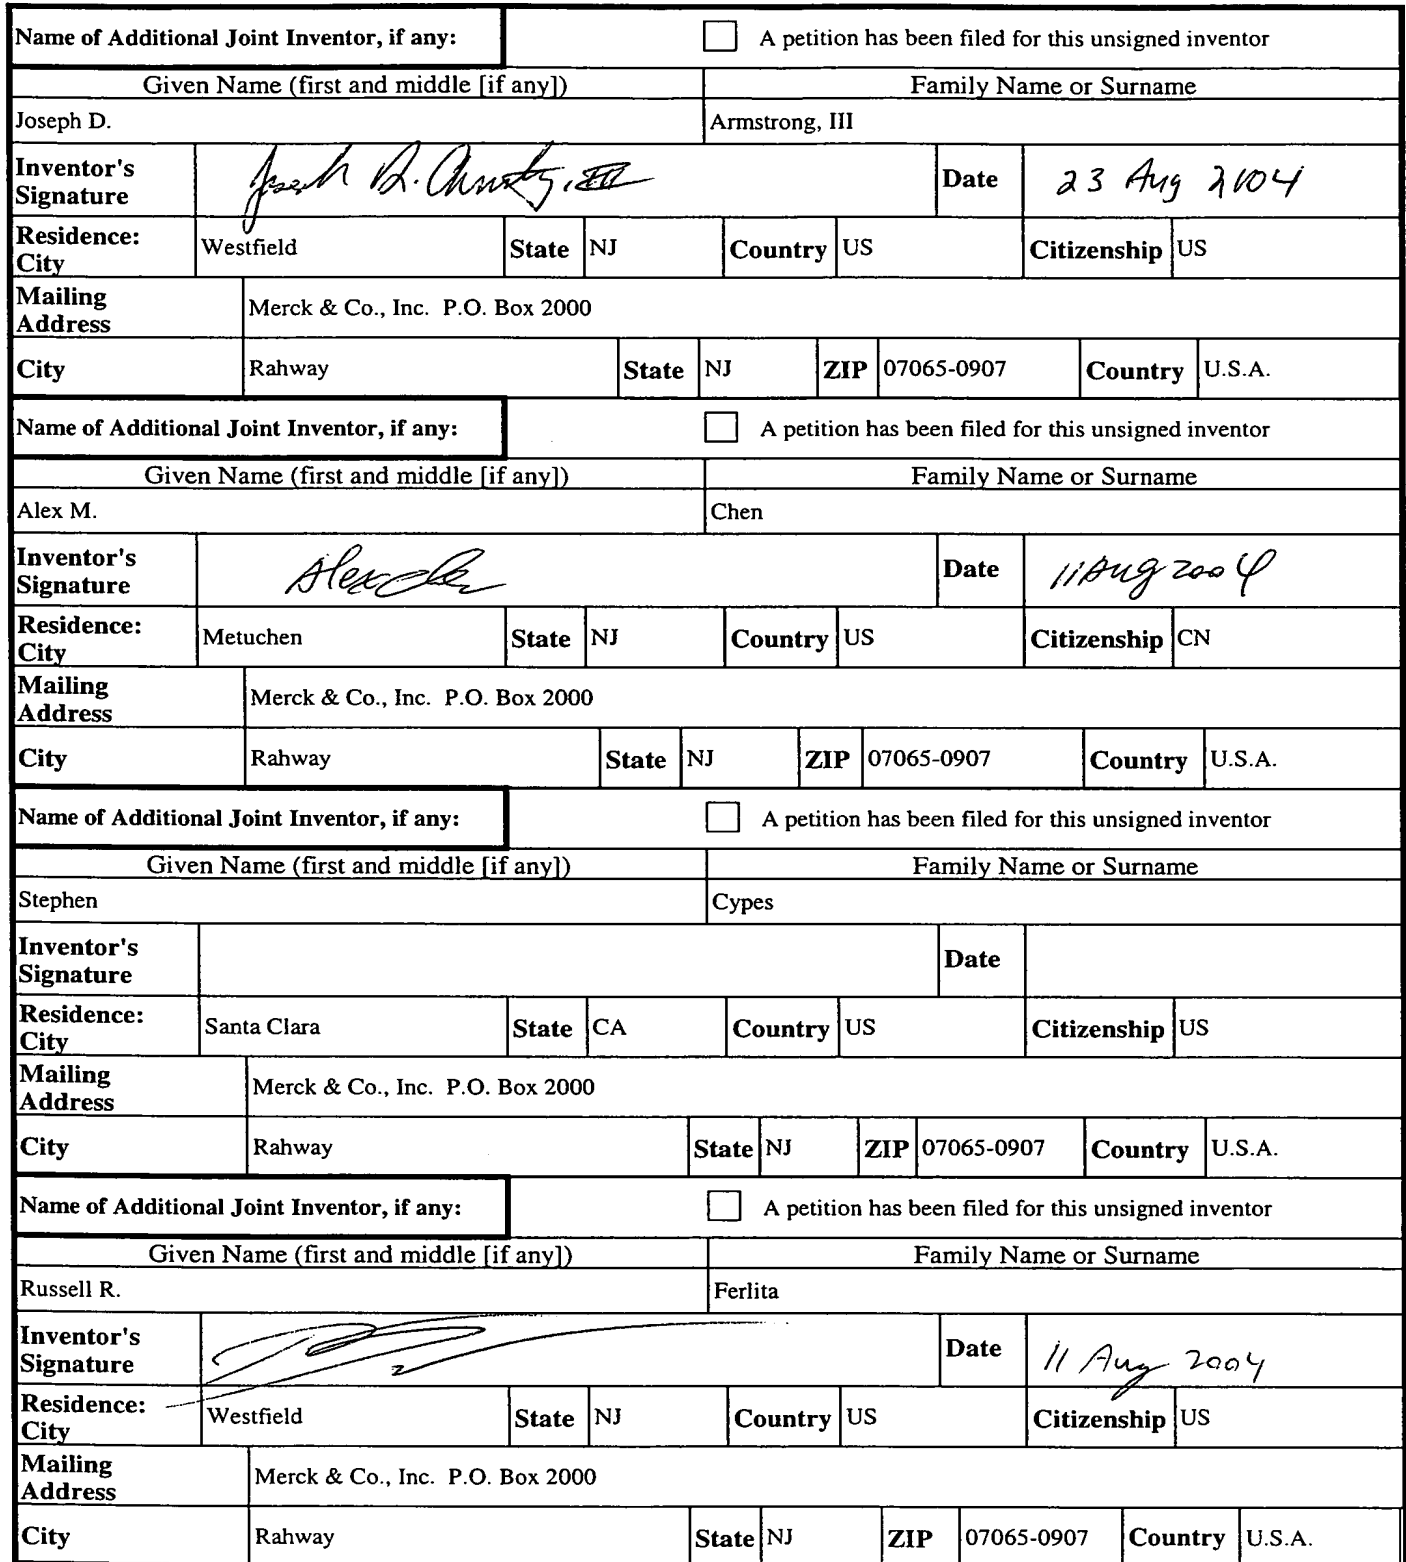 Name of Additional Joint Inventor, if any: A petition has been filed for this unsigned inventor
Given Name (first and middle [if any]) Family Name or Surname
Joseph D. Armstrong, III
Inventor's Signature Date 23 Aug 2004
Residence: City Westfield State NJ Country US Citizenship US
Mailing Address Merck & Co., Inc. P.O. Box 2000
City Rahway State NJ ZIP 07065-0907 Country U.S.A.
Name of Additional Joint Inventor, if any: A petition has been filed for this unsigned inventor
Given Name (first and middle [if any]) Family Name or Surname
Alex M. Chen
Inventor's Signature Alex Chen Date 11 Aug 2004
Residence: City Metuchen State NJ Country US Citizenship CN
Mailing Address Merck & Co., Inc. P.O. Box 2000
City Rahway State NJ ZIP 07065-0907 Country U.S.A.
Name of Additional Joint Inventor, if any: A petition has been filed for this unsigned inventor
Given Name (first and middle [if any]) Family Name or Surname
Stephen Cypes
Inventor's Signature Date
Residence: City Santa Clara State CA Country US Citizenship US
Mailing Address Merck & Co., Inc. P.O. Box 2000
City Rahway State NJ ZIP 07065-0907 Country U.S.A.
Name of Additional Joint Inventor, if any: A petition has been filed for this unsigned inventor
Given Name (first and middle [if any]) Family Name or Surname
Russell R. Ferlita
Inventor's Signature Date 11 Aug 2004
Residence: City Westfield State NJ Country US Citizenship US
Mailing Address Merck & Co., Inc. P.O. Box 2000
City Rahway State NJ ZIP 07065-0907 Country U.S.A.